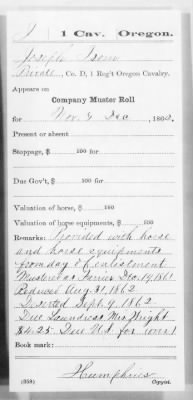 I | 1 Cav. | Oregon.
Joseph
Private, Co. D, 1 Reg't Oregon Cavalry.
Appears on
Company Muster Roll
for Nov. & Dec, 1862
Present or absent
Stoppage, $ 100 for
Due Gov't, $ 100 for
Valuation of horse, $ 100
Valuation of horse equipments, $ 100
Remarks: Provided with horse
and horse equipments
from day of enlistment
Mustered as Farrier Dec. 19, 1861
Reduced Aug. 31, 1862
Deserted Sept. 9, 1862.
Due Laundress Mrs. Wright
$4.25 Due U.S. for
Book mark:
Humphries
(358) Copyist.